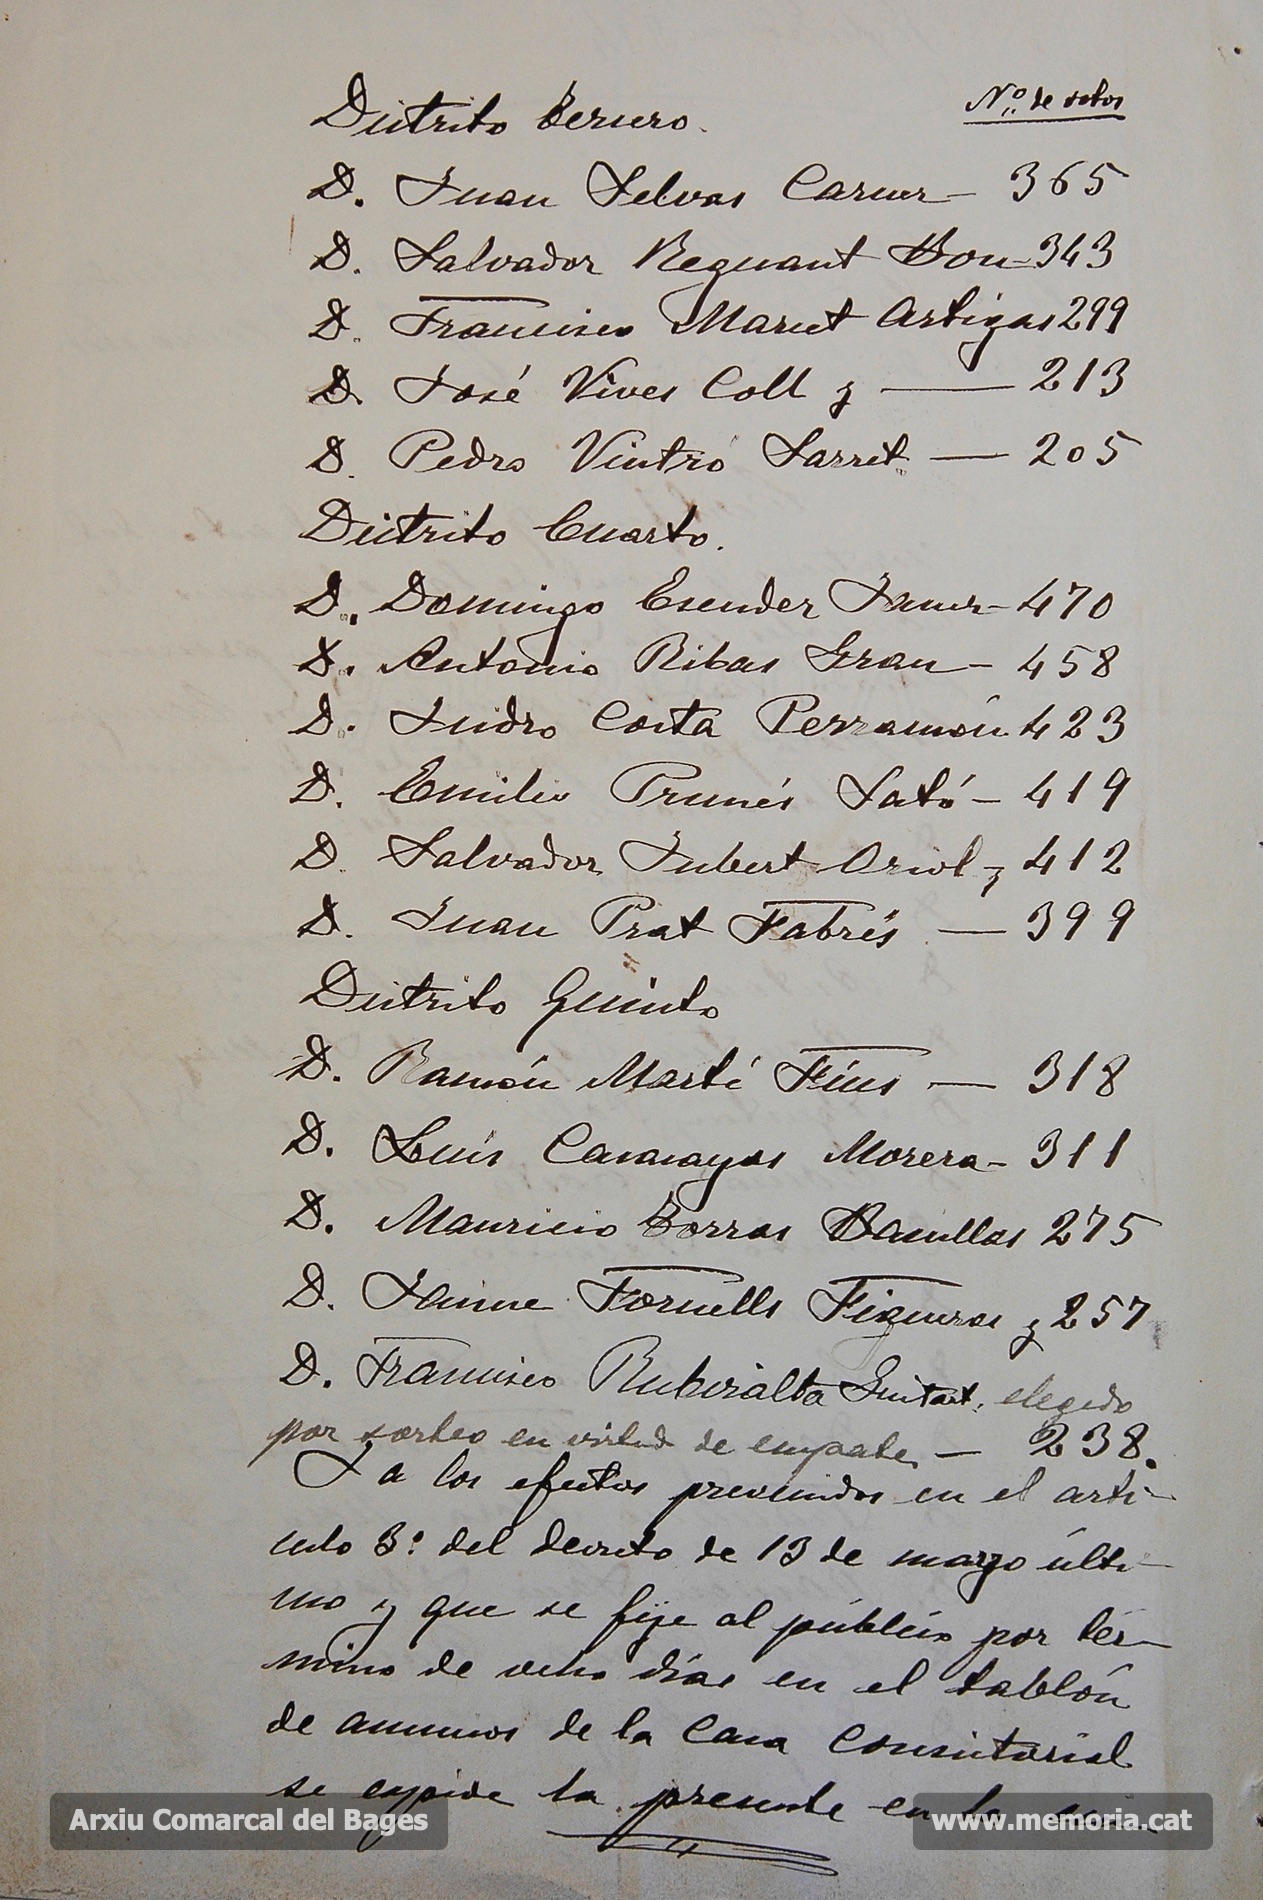 Distrito Tercero. Nº de votos
D. Juan Selvas Carner - 365
D. Salvador Reguant Bou - 343
D. Francisco Maret Artigas 299
D. José Vives Coll y — 213
D. Pedro Vintró Sarret — 205
Distrito Cuarto.
D. Domingo Escuder Janer - 470
D. Antonio Ribas Grau - 458
D. Isidro Costa Perramón 423
D. Emilio Prunés Sató - 419
D. Salvador Jubert Oriol y 412
D. Juan Prat Fabrés — 399
District Quinto
D. Ramón Martí Fíus — 318
D. Luís Casasayas Morera - 311
D. Mauricio Borras Banullas 275
D. Jaime Fornells Figueras y 257
D. Francisco Rubiralta Guitart, elegido
por sorteo en virtud de empate, — 238.
Y a los efectos prevenidos en el artí-
culo 3º del decreto de 13 de marzo últi-
mo y que se fije al público por tér-
mino de ocho días en el tablón
de anuncios de la Casa Consistorial
se expide la presente en la
Arxiu Comarcal del Bages
www.memoria.cat